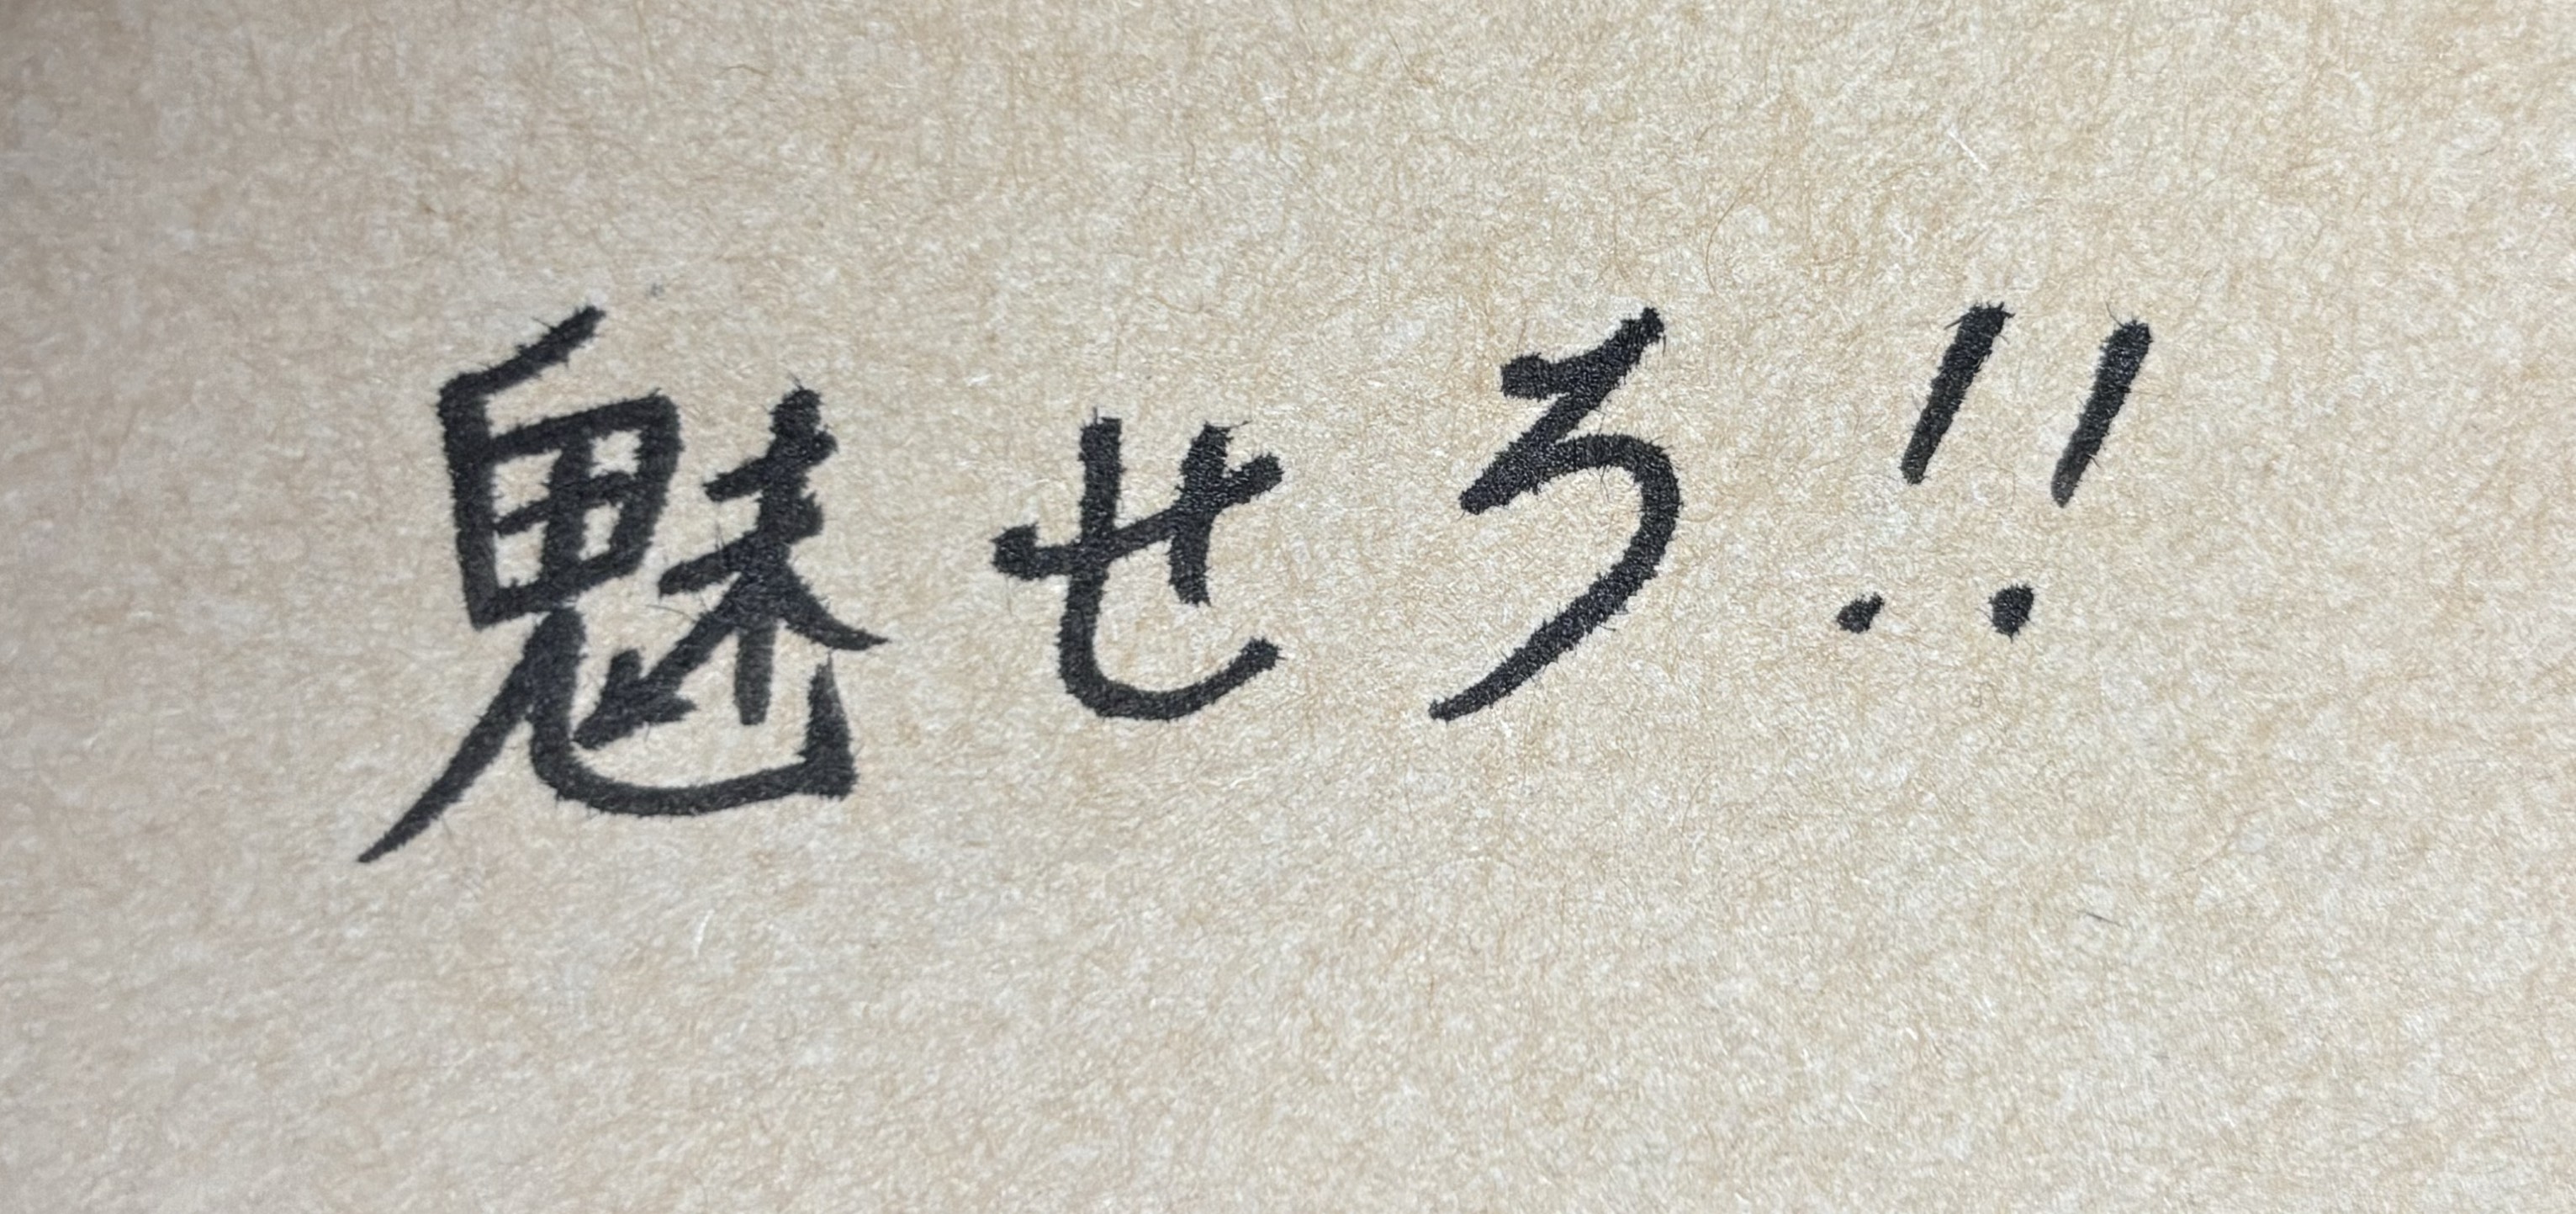 魅せろ!!